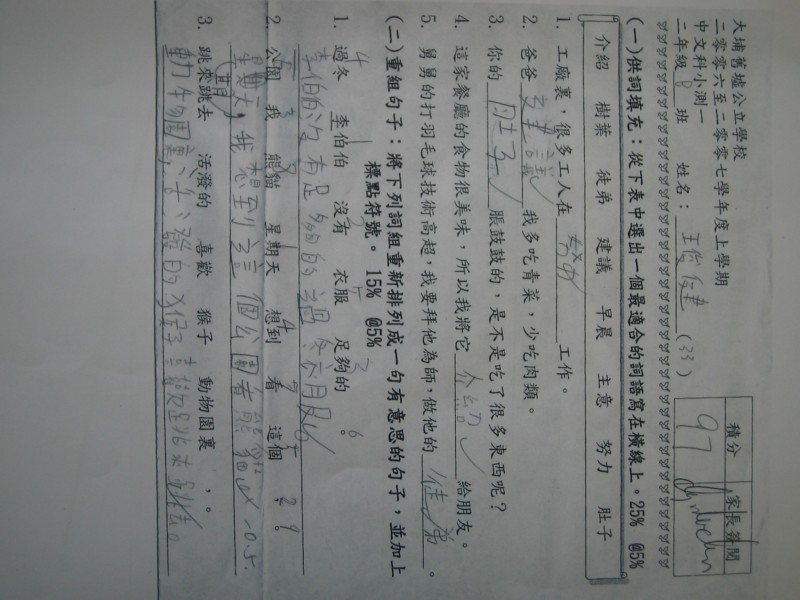 大埔舊墟公立學校
二零零六至二零零七學年度上學期
中文科小測一
二年級 B 班 姓名： (33)
積分 家長簽閱
97
(一)供詞填充：從下表中選出一個最適合的詞語寫在橫線上。25% @5%
介紹 樹葉 徒弟 建議 早晨 主意 努力 肚子
1. 工廠裏，很多工人在 努力 工作。
2. 爸爸 建議 我多吃青菜，少吃肉類。
3. 你的 肚子 脹鼓鼓的，是不是吃了很多東西呢？
4. 這家餐廳的食物很美味，所以我將它 介紹 給朋友。
5. 舅舅的打羽毛球技術高超，我要拜他為師，做他的 徒弟 。
(二)重組句子：將下列詞組重新排列成一句有意思的句子，並加上
標點符號。 15% @5%
1. 過冬 李伯伯 沒有 衣服 足夠的 。
李伯伯沒有足夠的過冬衣服。
2. 公園 我 熊貓 星期天 想到 看 這個 ， 。
星期天，我想到這個公園看熊貓。 -0.5
3. 跳來跳去 活潑的 喜歡 猴子 動物園裏 ，。
動物園裏，活潑的猴子喜歡跳來跳去。